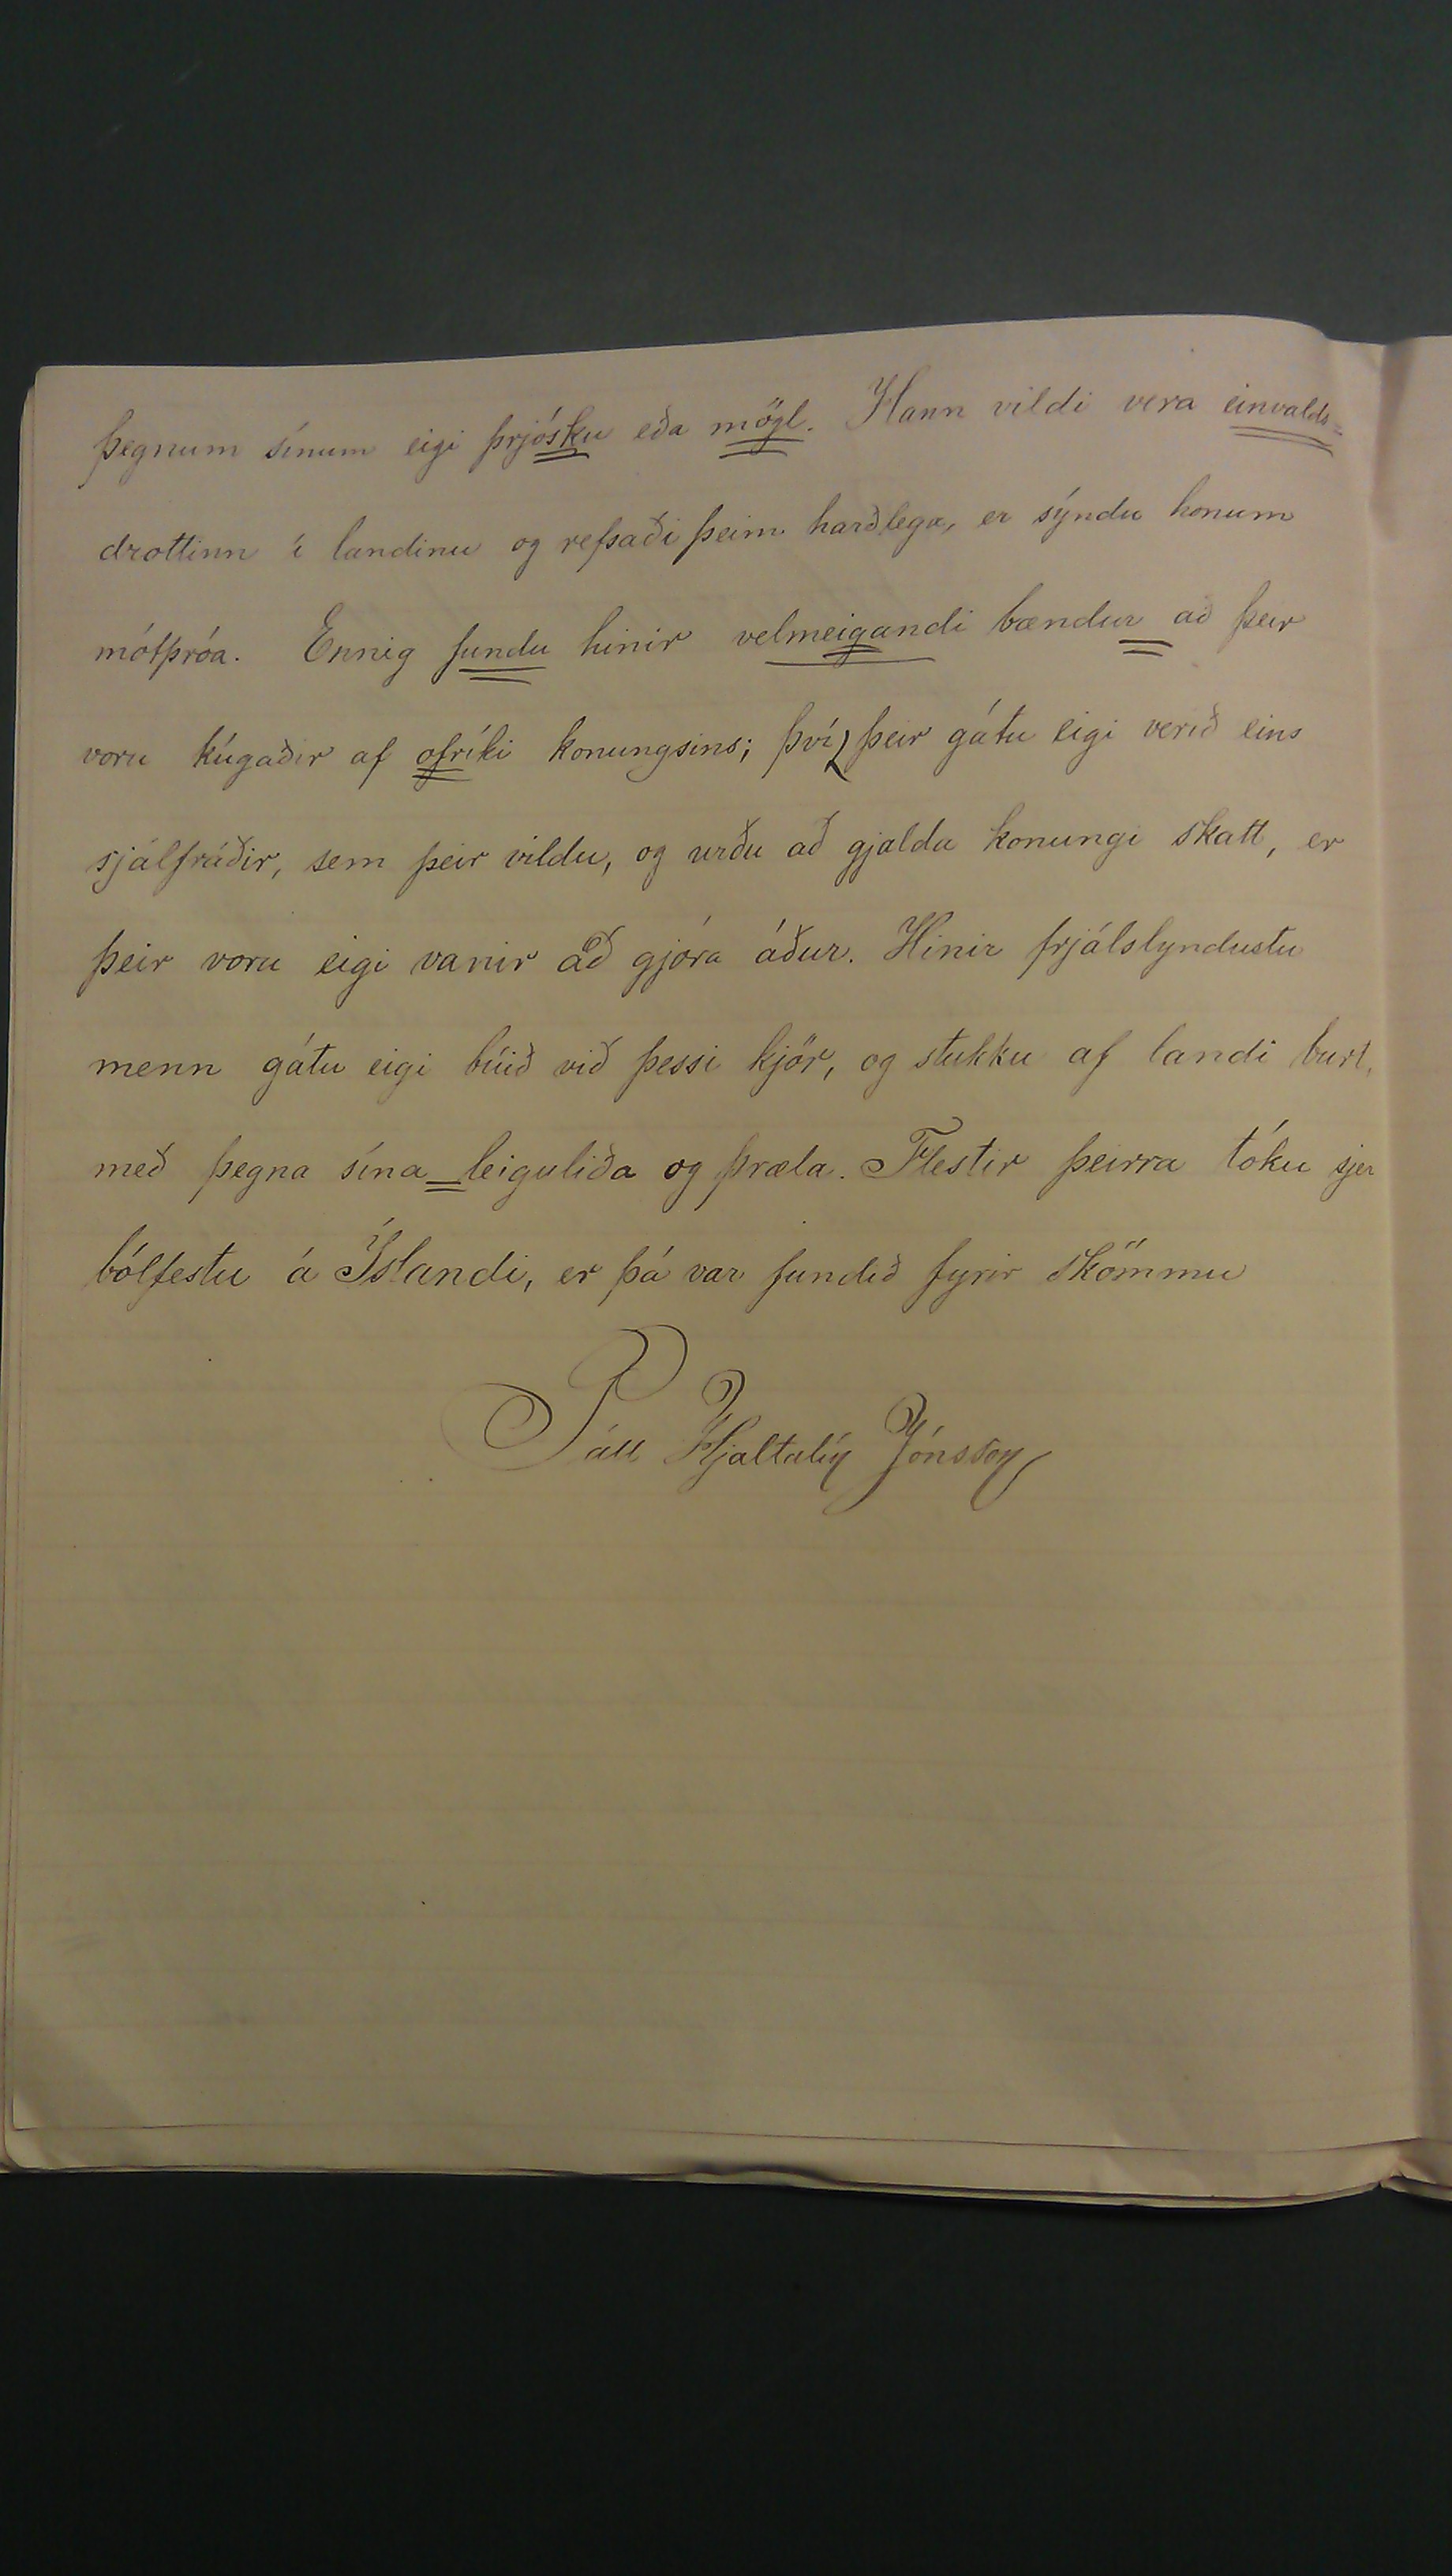 þegnum sínum eigi þrjósku eða mögl. Hann vildi vera einvalds-
drottinn í landinu og refsaði þeim harðlega, er sýndu honum
mótþróa. Ennig fundu hinir velmeigandi bændur að þeir
voru kúgaðir af ofríki konungsins; því þeir gátu eigi verið eins
sjálfráðir, sem þeir vildu, og urðu að gjalda konungi skatt, er
þeir voru eigi vanir að gjóra áður. Hinir frjálslyndustu
menn gátu eigi búið við þessi kjör, og stukku af landi burt,
með þegna sína leiguliða og þræla. Flestir þeirra tóku sjer
bólfestu á Íslandi, er þá var fundið fyrir skömmu
Páll Hjaltalín Jónsson